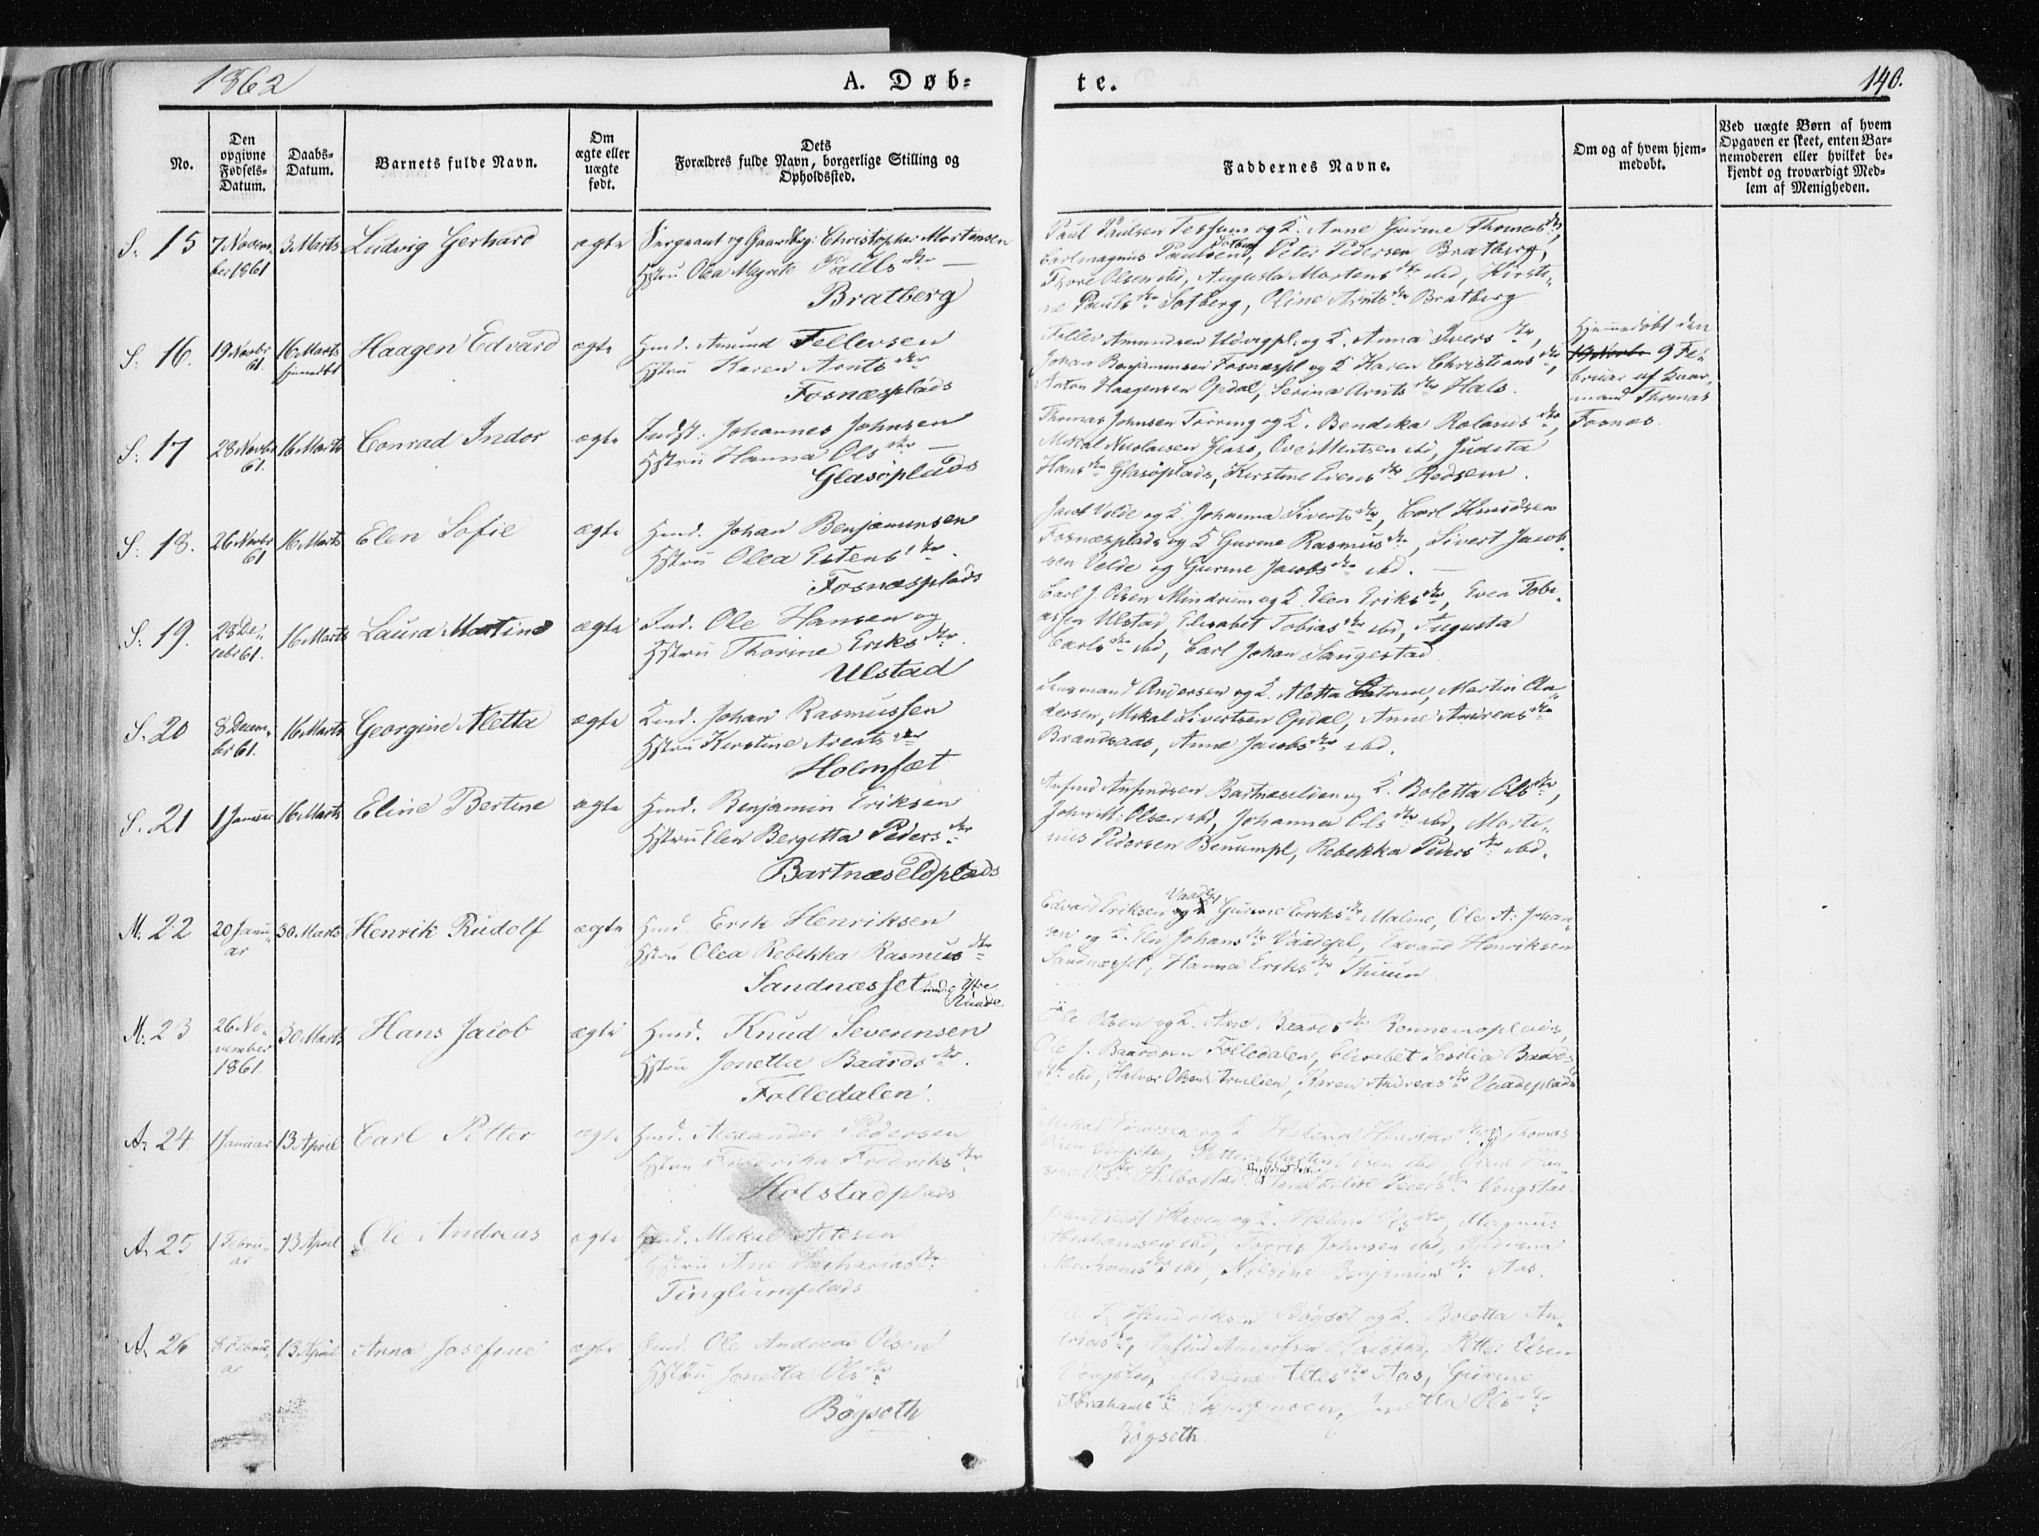 1862
A. Døb-
te.
140.
No.
Den opgivne Fødsels-Datum.
Daabs-Datum.
Barnets fulde Navn.
Om ægte eller uægte født.
Dets Forældres fulde Navn, borgerlige Stilling og Opholdssted.
Faddernes Navne.
Om og af hvem hjem-
medøbt.
Ved uægte Børn af hvem
Opgaven er skeet, enten Bar-
nemoderen eller hvilket be-
kjendt og troværdigt Med-
lem af Menigheden.
S. 15 7 Novem- 3 Marts Ludvig Gerhard ægte Sergeant og Gaardbr: Christopher Mortensen
ber 1861 Hstru Olea Megrete Pauls dtr
Bratberg
Paul Paulsen Tessum og K. Anne Gurine Thomas dtr,
Carl Magnus Paulsen Solberg, Peter Pedersen Bratberg,
Thore Olsen ibd, Augusta Mortens dtr ibd, Kirsti-
ne Pauls dtr Solberg, Oline Arnts dtr Bratberg
S. 16. 19 Novbr 16 Marts Haagen Edvard ægte Hmd. Amund Tellevsen
61. hjemmedbt Hstru Karen Arnts dtr
Fosnæsplads
Tellev Amundsen Udvigpl. og K. Anna Ivers dtr,
Johan Benjaminsen Fosnæspl og K Karen Christians dtr,
Anton Haagensen Opdal, Serina Arnts dtr Hals.
Hjemmedøbt den
9 Fe-
bruar af Gaar-
mand Thomas
Fosnæs.
S. 17 28 Novbr 16 Marts Conrad Indor ægte Indst: Johannes Johnsen
61. Hstru Hanna Ols dtr
Glasöplads
Thomas Johnsen Tørring og K. Bendika Rolands dtr,
Mekal Nicolaisen Glasö, Ove Mentsen ibd, Judita
Hans dtr Glasöplads, Kirstine Evens dtr Rodsem.
S. 18. 26 Novbr 16 Marts Elen Sofie ægte Hmd. Johan Benjaminsen
61 Hstru Olea Estens dtr.
Fosnæsplads
Jacob Velde og K Johanna Siverts dtr, Carl Knudsen
Fosnæsplads og K Gurine Rasmus dtr, Sivert Jacob-
sen Velde og Gurine Jacobs dtr ibd.
S. 19. 28 De- 16 Marts Laura Martine ægte Ind. Ole Hansen og
cebr 61. Hstru Thorine Eriks dtr.
Ulstad
Carl J Olsen Mindrum og K. Elen Eriks dtr, Even Tobi-
assen Ulstad, Elisabet Tobias dtr ibd, Augusta
Carls dtr ibd, Carl Johan Saugestad
S. 20 8 Decem- 16 Marts Georgine Aletta ægte Hmd. Johan Rasmussen
br 61. Hstru Kirstine Arents dtr
Holmset
Andersen og K. Aletta, Martin An-
dersen, Mekal Sivertsen Opdal, Anne Andreas dtr
Brandsaas, Anne Jacobs dtr ibd.
S. 21 1 Januar 16 Marts Eline Bertine ægte Hmd. Benjamin Eriksen
Hstru Elen Bergitta Peders dtr
Bartnæseldplads
Anfind Anfindsen Bartnæseldeen og K. Boletta Ols dtr,
John M: Olsen ibd, Johanna Ols dtr ibd, Marti-
nus Pedersen Benumpl, Rebekka Peders dtr ibd.
M. 22 20 Janu- 30 Marts Henrik Rudolf ægte Hmd. Erik Henriksen
ar Hstru Olea Rebekka Rasmus dtr
Sandnæsset und. Ytre
Edvard Eriksen Vaadepl og Gurine Eriks dtr Malme, Ole A: Johan-
sen og K. Johans dtr Vaadepl, Edvard Henriksen
Sandnæsset, Hanna Eriks dtr
M. 23 26 No- 30 Marts Hans Jacob ægte Hmd. Knud Severinsen
vember Hstru Jonetta Baards dtr.
1861. Folledalen.
Ole Olsen og K. Ane Baards dtr Rennemoplads,
Ole J. Baardsen Folledalen, Elisabet Sesilia Baards
dtr ibd, Halvor Olsen, Karen Andreas dtr Vaadeplads
A. 24 1 Januar 13 April Carl Petter ægte Hmd. Alexander Pedersen
Hstru Fredrika Fredriks dtr
Holstadplads
Mekal og K Helena Henriks dtr, Thomas
Olsen, Petter Olsen ibd,
Ols dtr Helbostad, Peders dtr Vengstad
A. 25 1 Febru- 13 April Ole Andreas ægte Hmd. Mekal Altesen
ar Hstru Ane Sacharias dtr
Tinglumplads
og K. Helena Ols dtr, Magnus
Abrahamsen ibd, Johnsen ibd,
Abrahams dtr ibd, Nilsine Benjamins dtr Aas.
A. 26 8 Febru- 13 April Anna Josefine ægte Hmd. Ole Andreas Olsen
ar Hstru Jonetta Ols dtr
Bøgseth
Ole T. Hendriksen Bøgset og K. Boletta An-
dreas dtr, Petter Olsen
Vengstad, Altes dtr Aas, Gurine
Abrahams dtr, Jonetta Ols dtr
Bøgseth.